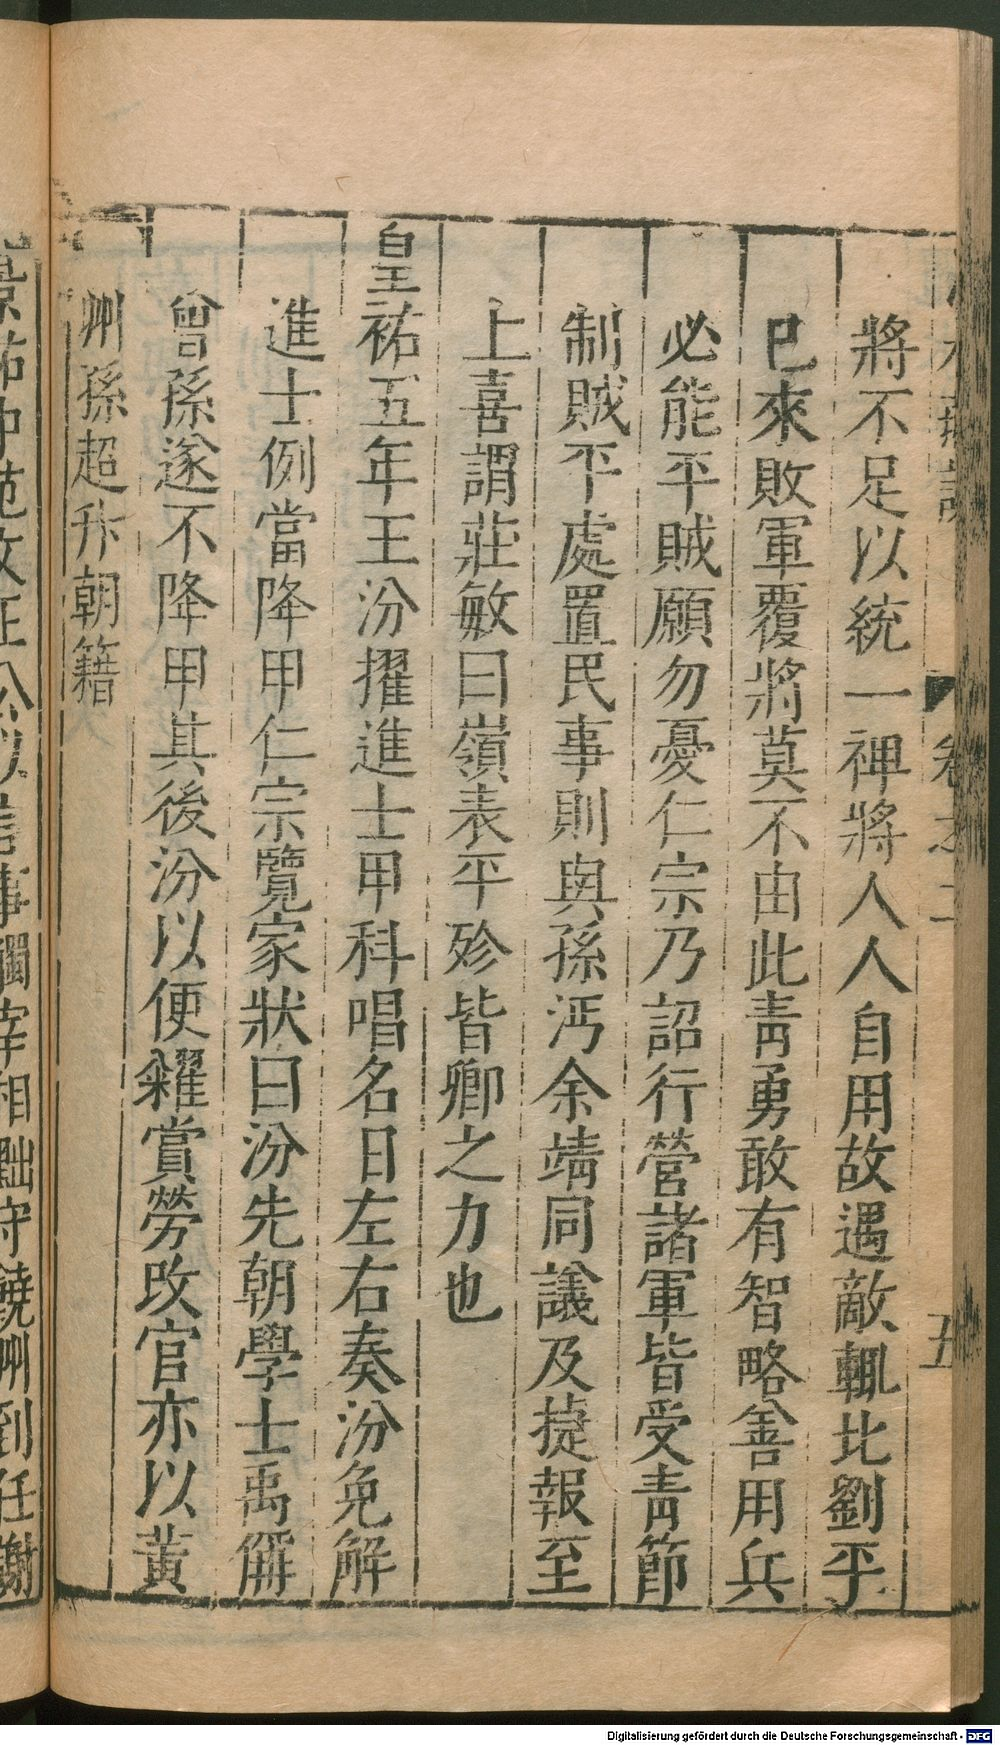 將不足以統一裨將人人自用故遇敵輒北劉平
已來敗軍覆將莫不由此青勇敢有智略善用兵
必能平賊願勿憂仁宗乃詔行營諸軍皆受青節
制賊平處置民事則與孫沔余靖同議及捷報至
上喜謂莊敏曰嶺表平殄皆卿之力也
皇祐五年王汾擢進士甲科唱名日左右奏汾免解
進士例當降甲仁宗覽家狀曰汾先朝學士禹偁
曾孫遂不降甲其後汾以便糴賞勞改官亦以黃
州孫超升朝籍
Digitalisierung gefördert durch die Deutsche Forschungsgemeinschaft - DFG